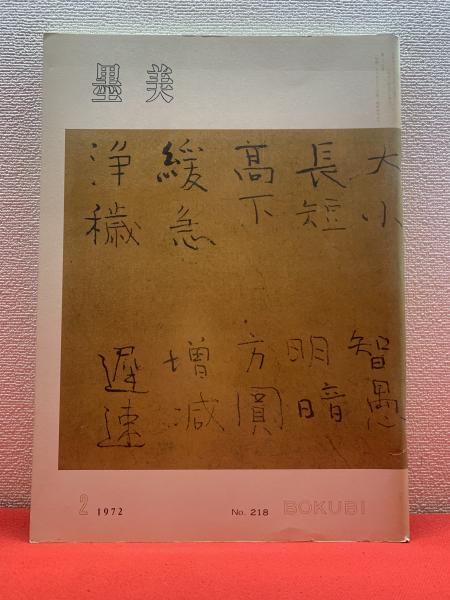 墨美
大小 智愚
長短 明暗
高下 方圓
緩急 増減
浄穢 遅速
2 1972 No. 218 BOKUBI